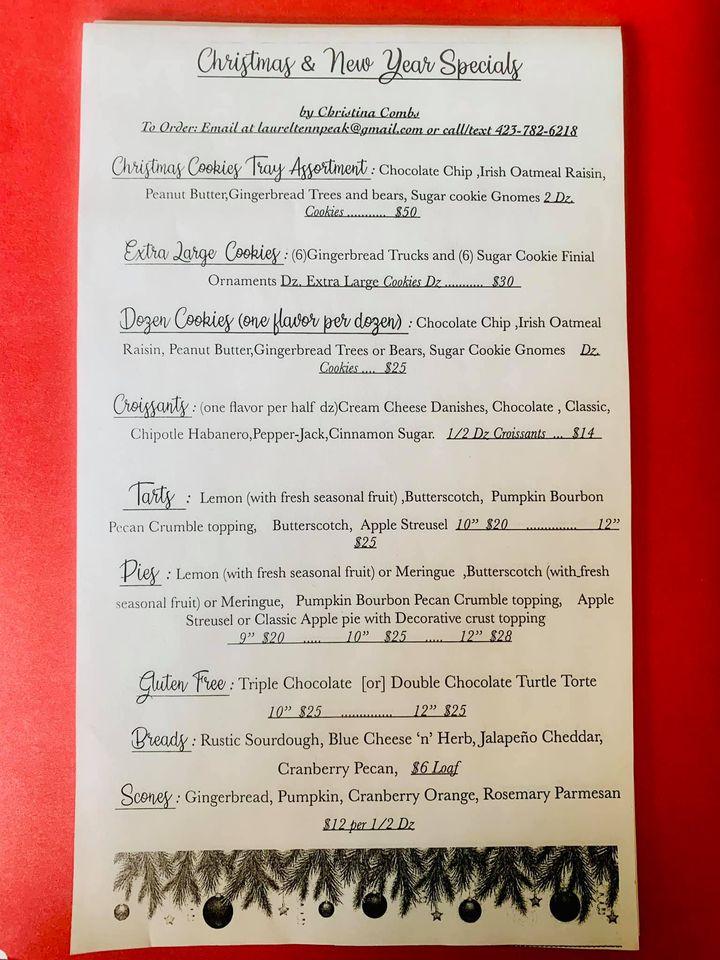 Christmas & New Year Specials
by Christina Combs
To Order: Email at laureltennpeak@gmail.com or call/text 423-782-6218
Christmas Cookies Tray Assortment : Chocolate Chip ,Irish Oatmeal Raisin,
Peanut Butter,Gingerbread Trees and bears, Sugar cookie Gnomes 2 Dz.
Cookies ........... $50
Extra Large Cookies : (6)Gingerbread Trucks and (6) Sugar Cookie Finial
Ornaments Dz. Extra Large Cookies Dz ........... $30
Dozen Cookies (one flavor per dozen) : Chocolate Chip ,Irish Oatmeal
Raisin, Peanut Butter,Gingerbread Trees or Bears, Sugar Cookie Gnomes Dz.
Cookies .... $25
Croissants : (one flavor per half dz)Cream Cheese Danishes, Chocolate , Classic,
Chipotle Habanero,Pepper-Jack,Cinnamon Sugar. 1/2 Dz Croissants ... $14
Tarts : Lemon (with fresh seasonal fruit) ,Butterscotch, Pumpkin Bourbon
Pecan Crumble topping, Butterscotch, Apple Streusel 10” $20 .............. 12”
$25
Pies : Lemon (with fresh seasonal fruit) or Meringue ,Butterscotch (with fresh
seasonal fruit) or Meringue, Pumpkin Bourbon Pecan Crumble topping, Apple
Streusel or Classic Apple pie with Decorative crust topping
9” $20 ..... 10” $25 ..... 12” $28
Gluten Free : Triple Chocolate [or] Double Chocolate Turtle Torte
10” $25 .............. 12” $25
Breads : Rustic Sourdough, Blue Cheese ‘n’ Herb, Jalapeño Cheddar,
Cranberry Pecan, $6 Loaf
Scones : Gingerbread, Pumpkin, Cranberry Orange, Rosemary Parmesan
$12 per 1/2 Dz